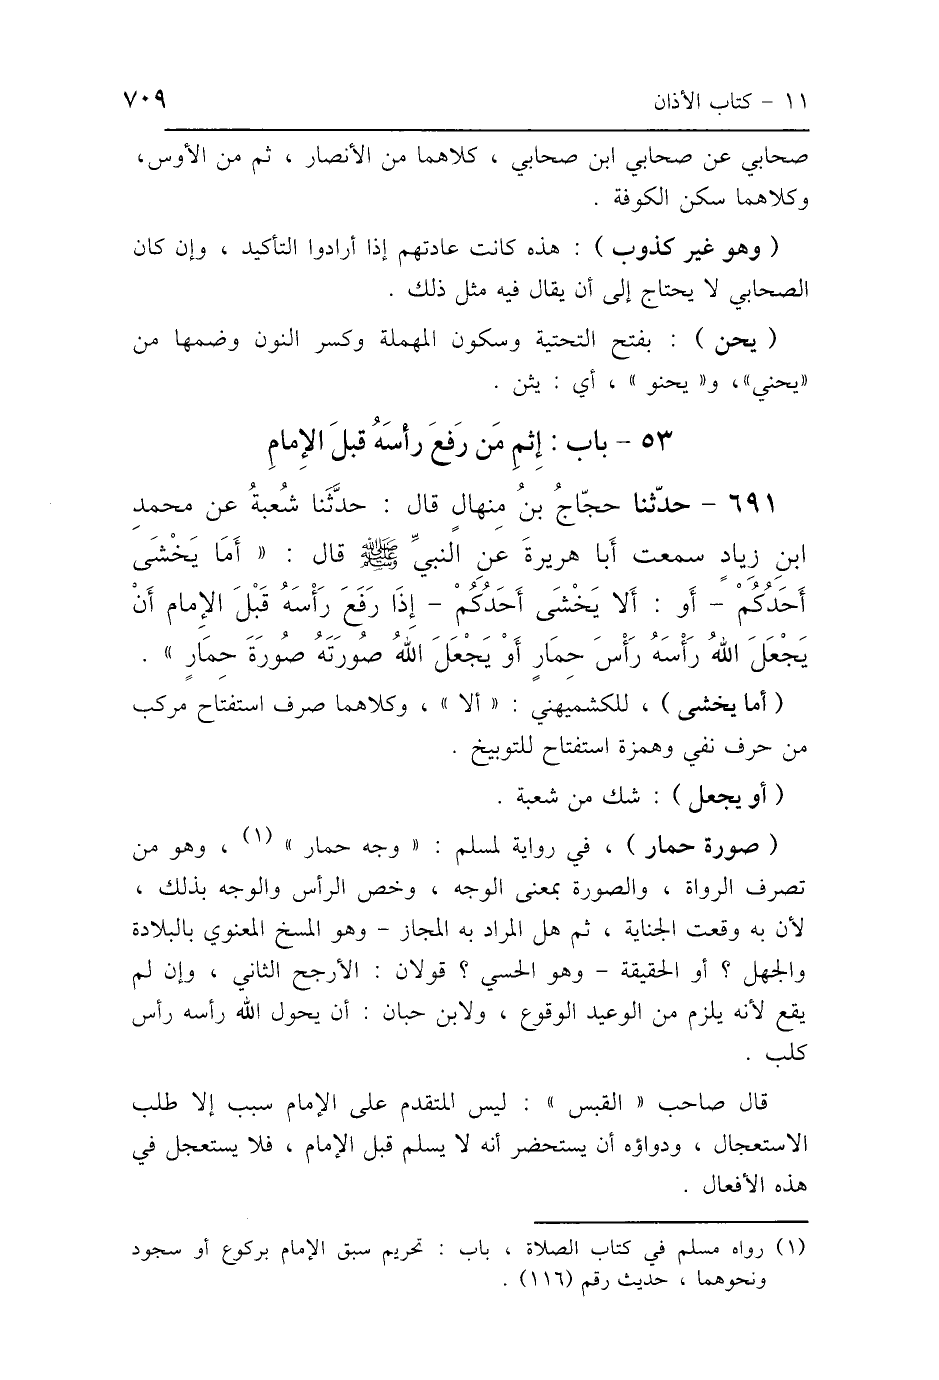 ١١ - كتاب الأذان ٧٠٩
صحابي عن صحابي ابن صحابي ، كلاهما من الأنصار ، ثم من الأوس،
وكلاهما سكن الكوفة .
( وهو غير كذوب ) : هذه كانت عادتهم إذا أرادوا التأكيد ، وإن كان
الصحابي لا يحتاج إلى أن يقال فيه مثل ذلك .
( يحن ) : بفتح التحتية وسكون المهملة وكسر النون وضمها من
«يحني»، و« يحنو » ، أي : يثن .
٥٣ - باب : إِثمِ مَن رَفَعَ رأسَهُ قبلَ الإِمامِ
٦٩١ - حدّثنا حجّاجُ بنُ مِنهالٍ قال : حدَّثَنا شُعبةُ عن محمدِ
ابنِ زيادٍ سمعت أبا هريرةَ عنِ النبيِّ ﷺ قال : « أَمَا يَخْشَى
أَحَدُكُمْ - أَو : أَلا يَخْشَى أَحَدُكُمْ - إِذَا رَفَعَ رَأْسَهُ قَبْلَ الإِمامِ أَنْ
يَجْعَلَ اللهُ رَأْسَهُ رَأْسَ حِمارٍ أَوْ يَجْعَلَ اللهُ صُورَتَهُ صُورَةَ حِمَارٍ » .
( أما يخشى ) ، للكشميهني : « ألا » ، وكلاهما صرف استفتاح مركب
من حرف نفي وهمزة استفتاح للتوبيخ .
( أو يجعل ) : شك من شعبة .
( صورة حمار ) ، في رواية لمسلم : « وجه حمار » (١) ، وهو من
تصرف الرواة ، والصورة بمعنى الوجه ، وخص الرأس والوجه بذلك ،
لأن به وقعت الجناية ، ثم هل المراد به المجاز - وهو المسخ المعنوي بالبلادة
والجهل ؟ أو الحقيقة - وهو الحسي ؟ قولان : الأرجح الثاني ، وإن لم
يقع لأنه يلزم من الوعيد الوقوع ، ولابن حبان : أن يحول الله رأسه رأس
كلب .
قال صاحب « القبس » : ليس للتقدم على الإمام سبب إلا طلب
الاستعجال ، ودواؤه أن يستحضر أنه لا يسلم قبل الإمام ، فلا يستعجل في
هذه الأفعال .
(١) رواه مسلم في كتاب الصلاة ، باب : تحريم سبق الإمام بركوع أو سجود
ونحوهما ، حديث رقم (١١٦) .